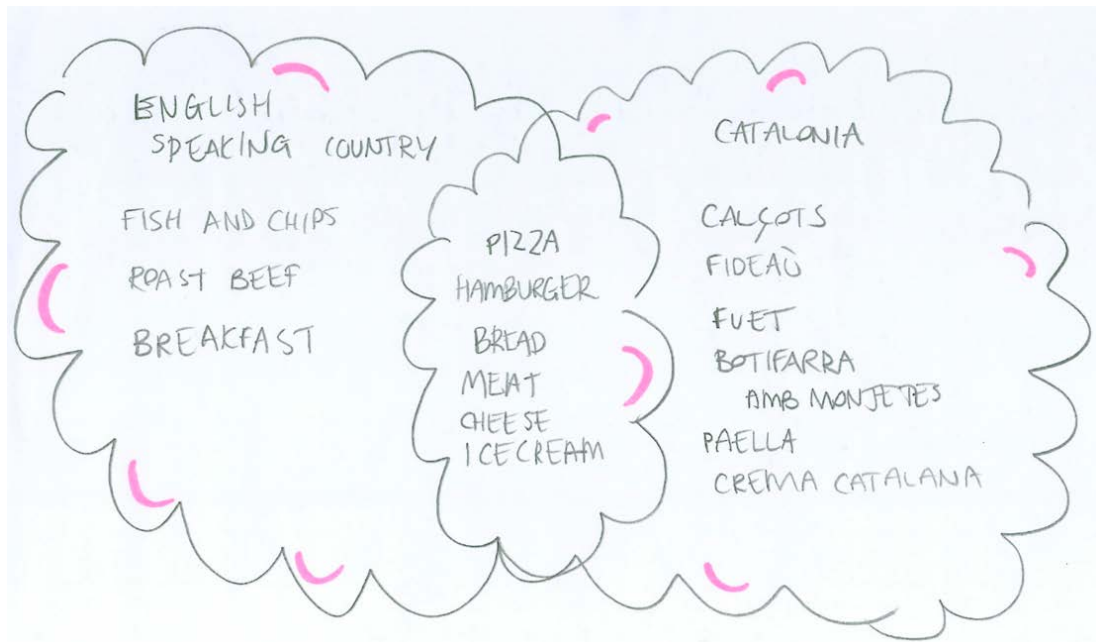 ENGLISH
SPEAKING COUNTRY
FISH AND CHIPS
ROAST BEEF
BREAKFAST
PIZZA
HAMBURGER
BREAD
MEAT
CHEESE
ICECREAM
CATALONIA
CALÇOTS
FIDEAÙ
FUET
BOTIFARRA
AMB MONJETES
PAELLA
CREMA CATALANA